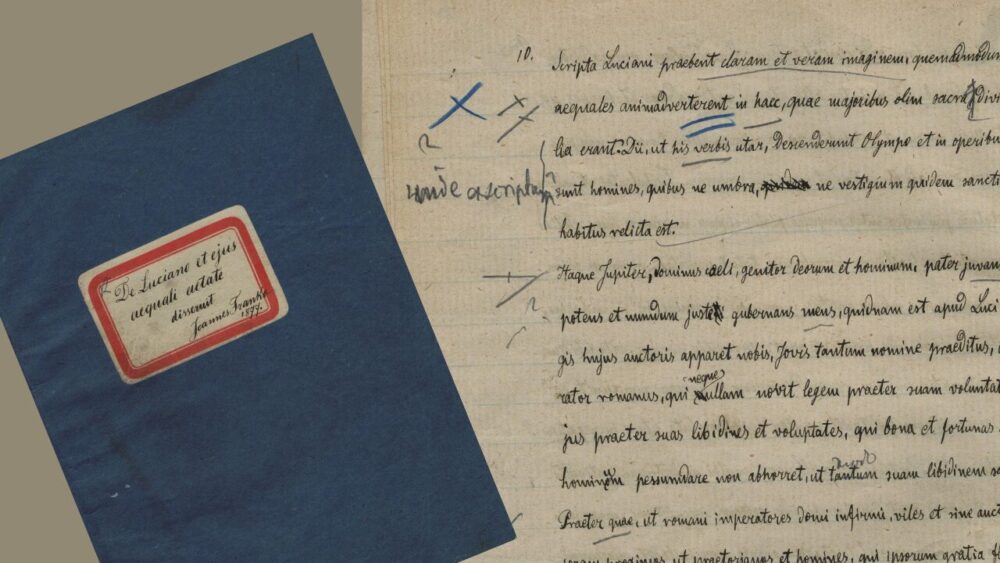 De Luciano et ejus
aequali aetate
disseruit
Joannes Franko
1877.
10.
Scripta Luciani praebent claram et veram imaginem, quemadmodum
aequales animadverterent in haec, quae majoribus olim sacra divi
lia erant. Dii, ut his verbis utar, Descenderunt Olympo et in operibu
sunt homines, quibus ne umbra, ne vestigium quidem sancti
habitus relicta est.
unde ascripta
Itaque Jupiter, dominus caeli, genitor deorum et hominum, pater juvam
potens et mundum juste gubernans mens, quidnam est apud Luci
gis hujus auctoris apparet nobis, Jovis tantum nomine praeditus,
rator romanus, qui neque ullam novit legem praeter suam voluntat
jus praeter suas libidines et voluptates, qui bona et fortunas
hominum pessundare non abhorret, ut tantum suam libidinem
Praeter quae, ut romani imperatores domi infirmi, viles et sine auct
ut praetorianos et homines, qui ipsorum gratia